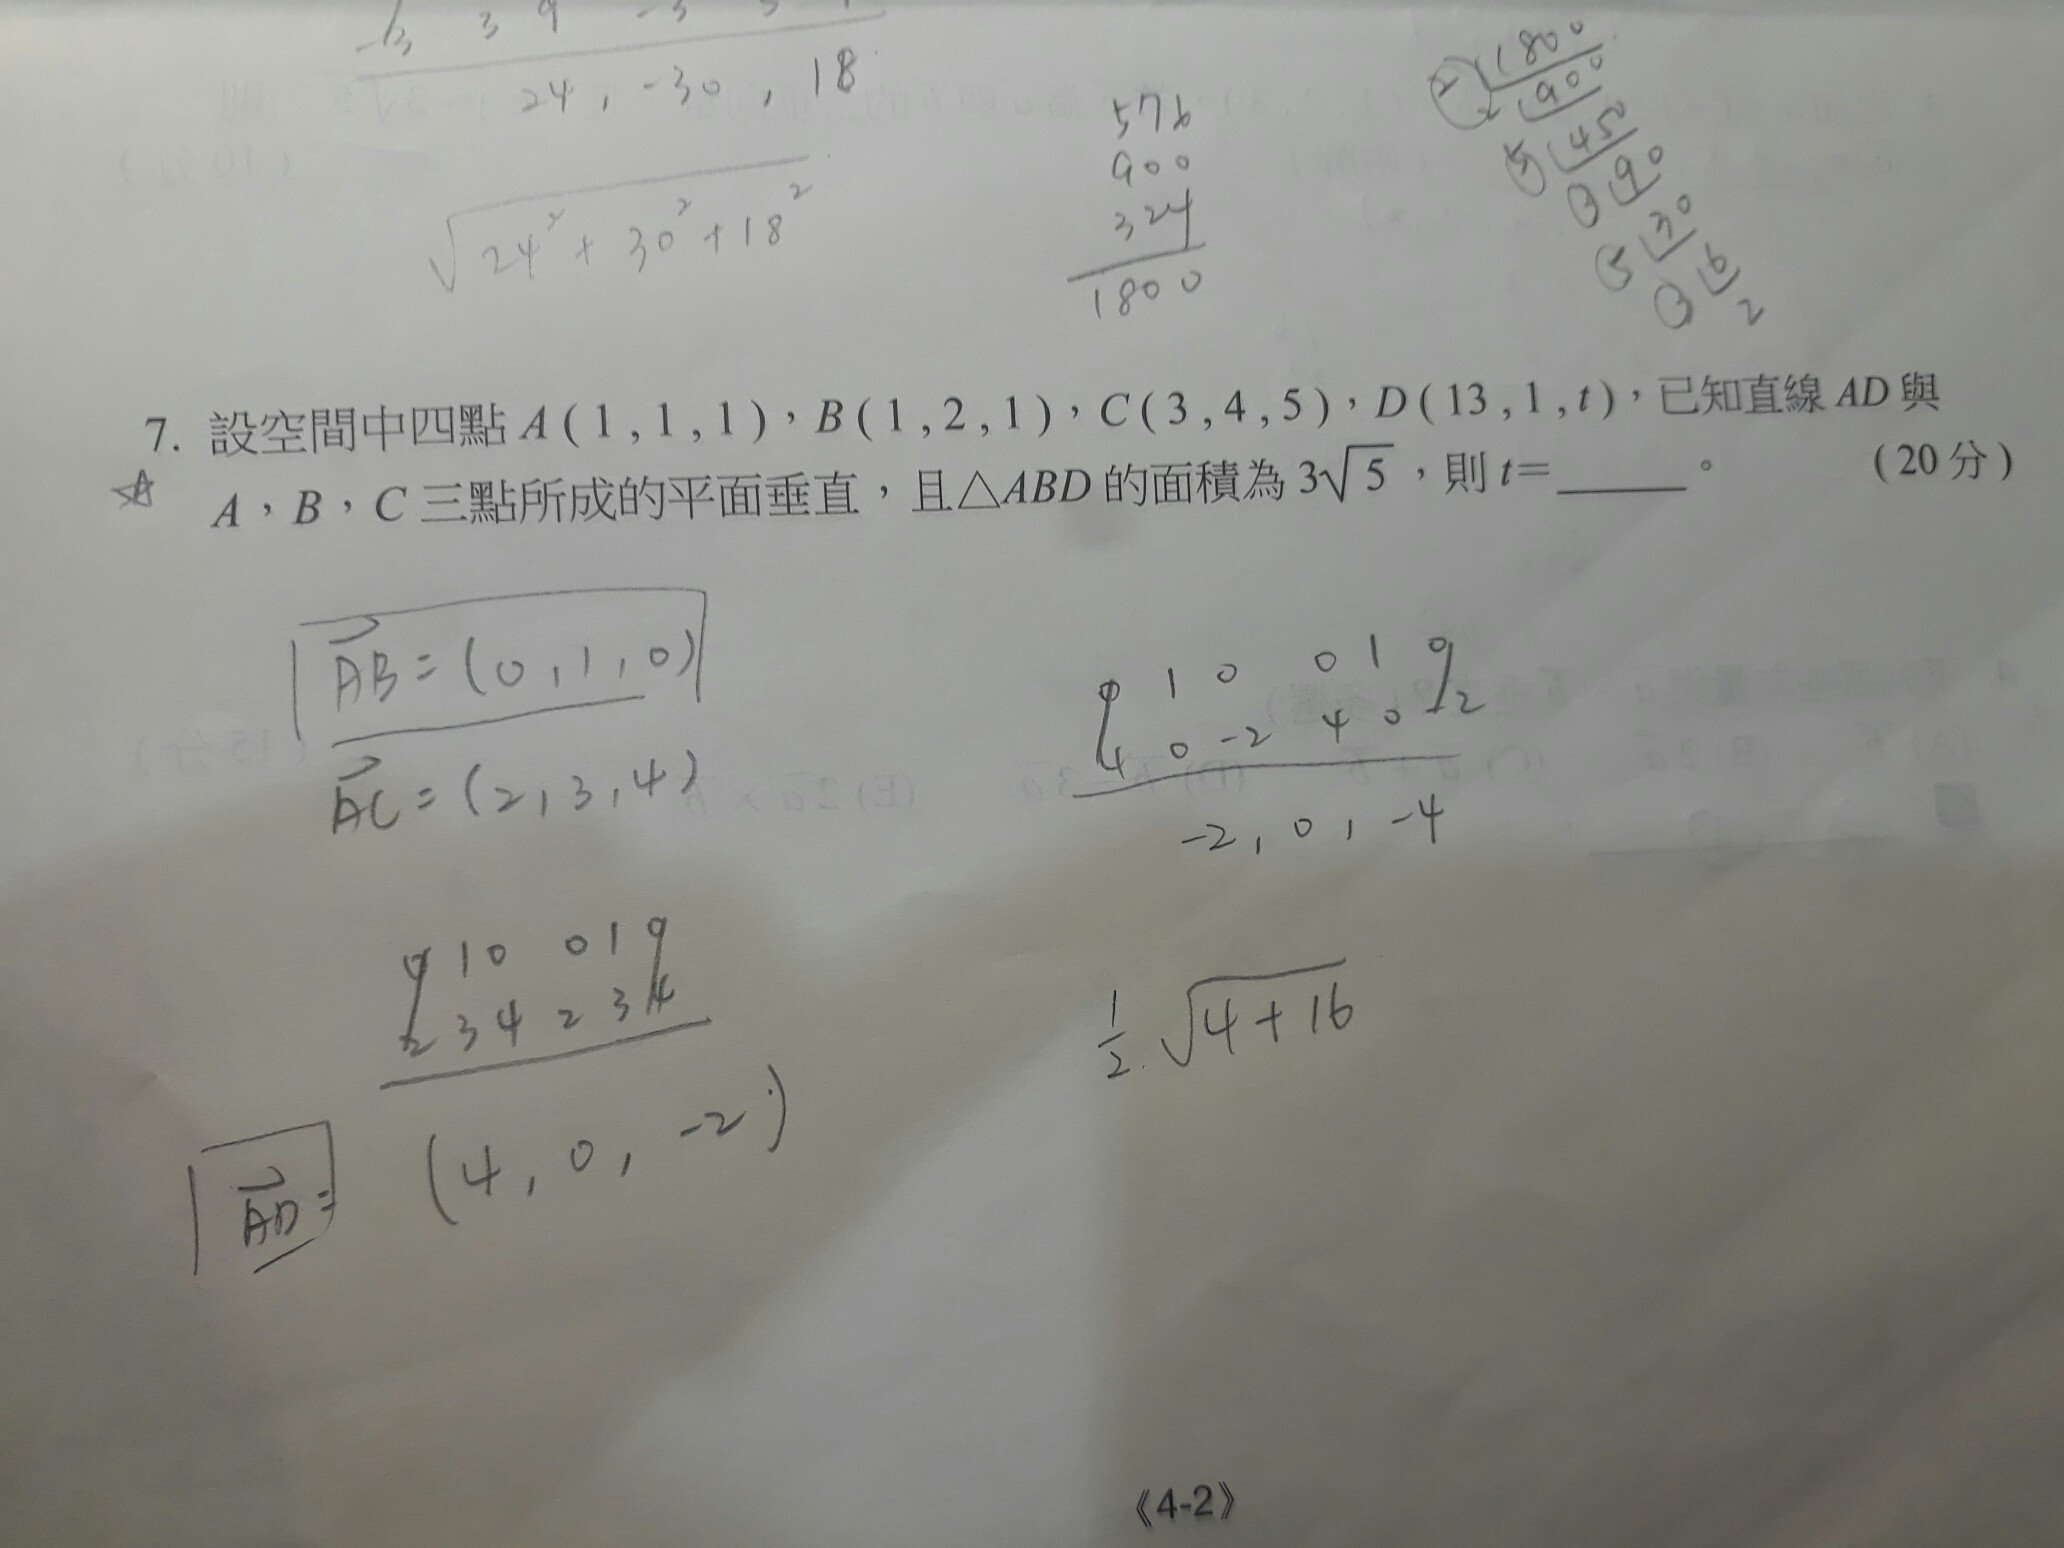 3 9 -3 3
24, -30, 18
√24²+30²+18²
576
900
324
1800
2 1800
2 900
5 450
90
5 30
6
2
7. 設空間中四點 A(1,1,1),B(1,2,1),C(3,4,5),D(13,1,t),已知直線 AD 與
☆ A,B,C 三點所成的平面垂直,且△ABD 的面積為 3√5,則 t=_____。 (20分)
AB=(0,1,0)
AC=(2,3,4)
0 1 0 0 1 0
2 3 4 2 3 4
AD= (4,0,-2)
0 1 0 0 1 0
4 0 -2 4 0 -2
-2, 0, -4
1/2 · √4+16
《4-2》